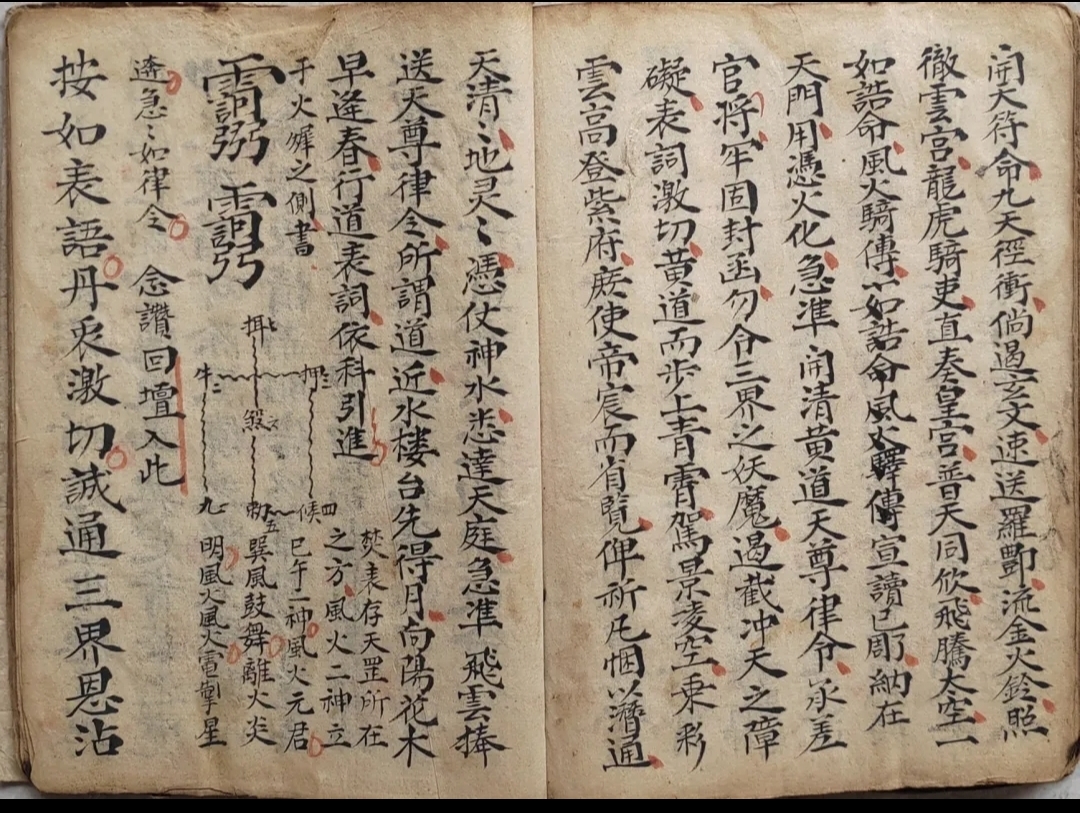 開天符命九天徑衝倘遇玄文速送羅酆流金火鈴照
徹雲宮龍虎騎吏直奏皇宮普天同攸飛騰太空一
如誥命風火騎傳〻如誥命風火驛傳宣讀已耶納在
天門用憑火化急準開清黃道天尊律令承差
官將牢固封函勿令三界之妖魔遏截冲天之障
礙表詞激切黃道而步上青霄駕景凌空乘彩
雲高登紫府庶使帝宸而省覽俾祈凡悃潛通
天清〻地灵〻憑仗神水悉達天庭急準飛雲捧
送天尊律令所謂道近水樓台先得月向陽花木
早逢春行道表詞依科引進
于火獬之側書
焚表存天罡所在
之方風火二神立
巳午二神風火元君
巽風鼓舞離火炎
明風火風火雷掣星
押三
牛二
煞
九
候四
五
迻急〻如律令 念讚回壇入此
按如表語丹衷激切誠通三界恩沾